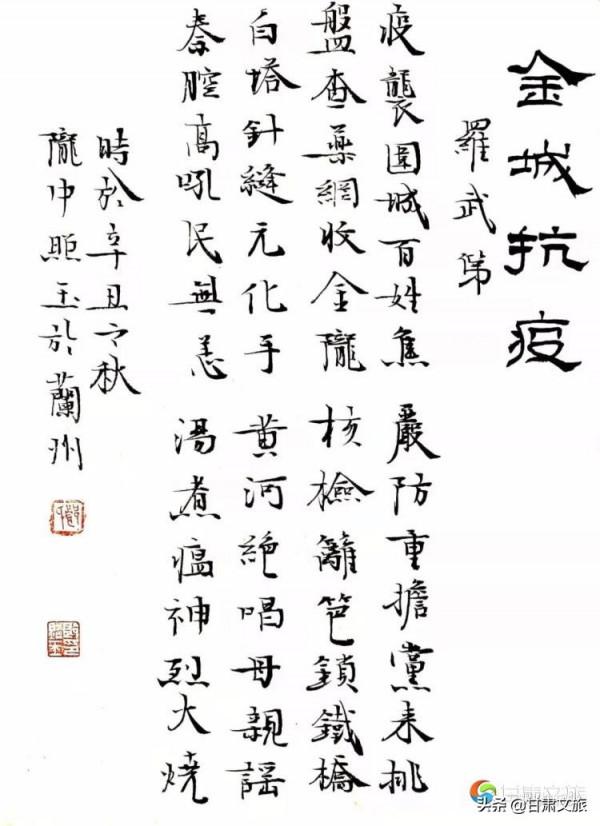 金城抗疫
羅武第
疫襲圍城百姓焦 嚴防重擔黨來挑
盤查藥網收金隴 核檢籬笆鎖鐵橋
白塔針縫元化手 黄河絕唱母親謡
秦腔高吼民無恙 湯煮瘟神烈火燒
時於辛丑之秋
隴中照玉於蘭州
甘肃文旅
头条@甘肃文旅